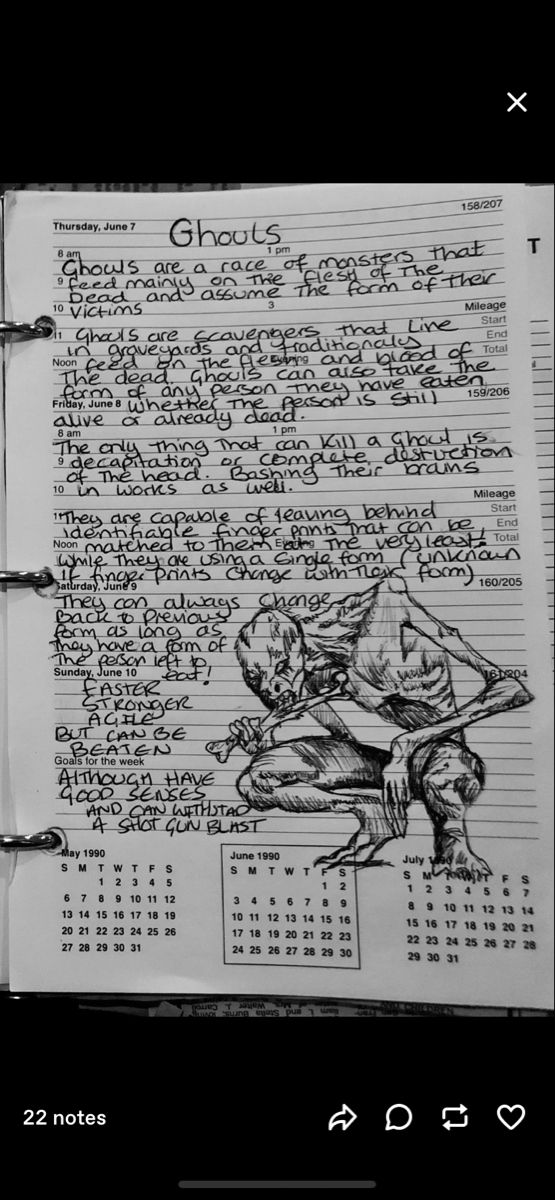 158/207
Thursday, June 7
Ghouls
8 am
1 pm
Ghouls are a race of monsters that
9 feed mainly on the flesh of the
Dead and assume the form of their
10 victims
3
Mileage
Start
11 Ghouls are scavengers that Live
End
in graveyards and traditionaly
Noon feed on the flesh and blood of
Evening
Total
The dead. Ghouls can also take the
form of any person they have eaten
159/206
Friday, June 8 whether the person is still
alive or already dead.
8 am
1 pm
The only thing that can kill a Ghoul is
9 decapitation or complete destruction
of the head. Bashing their brains
10 in works as well.
Mileage
Start
11 They are capable of leaving behind
identifiable finger prints that can be
End
Noon matched to them at the very least!
Total
While they are using a single form (unknown
if finger prints change with their form)
Saturday, June 9
160/205
They can always change
Back to previous
form as long as
they have a form of
The person left to
eat!
Sunday, June 10
161/204
FASTER
STRONGER
AGILE
BUT CAN BE
BEATEN
Goals for the week
ALTHOUGH HAVE
GOOD SENSES
AND CAN WITHSTAD
A SHOTGUN BLAST
May 1990
S M T W T F S
1 2 3 4 5
6 7 8 9 10 11 12
13 14 15 16 17 18 19
20 21 22 23 24 25 26
27 28 29 30 31
June 1990
S M T W T F S
1 2
3 4 5 6 7 8 9
10 11 12 13 14 15 16
17 18 19 20 21 22 23
24 25 26 27 28 29 30
July 1990
S M T W T F S
1 2 3 4 5 6 7
8 9 10 11 12 13 14
15 16 17 18 19 20 21
22 23 24 25 26 27 28
29 30 31
T
22 notes